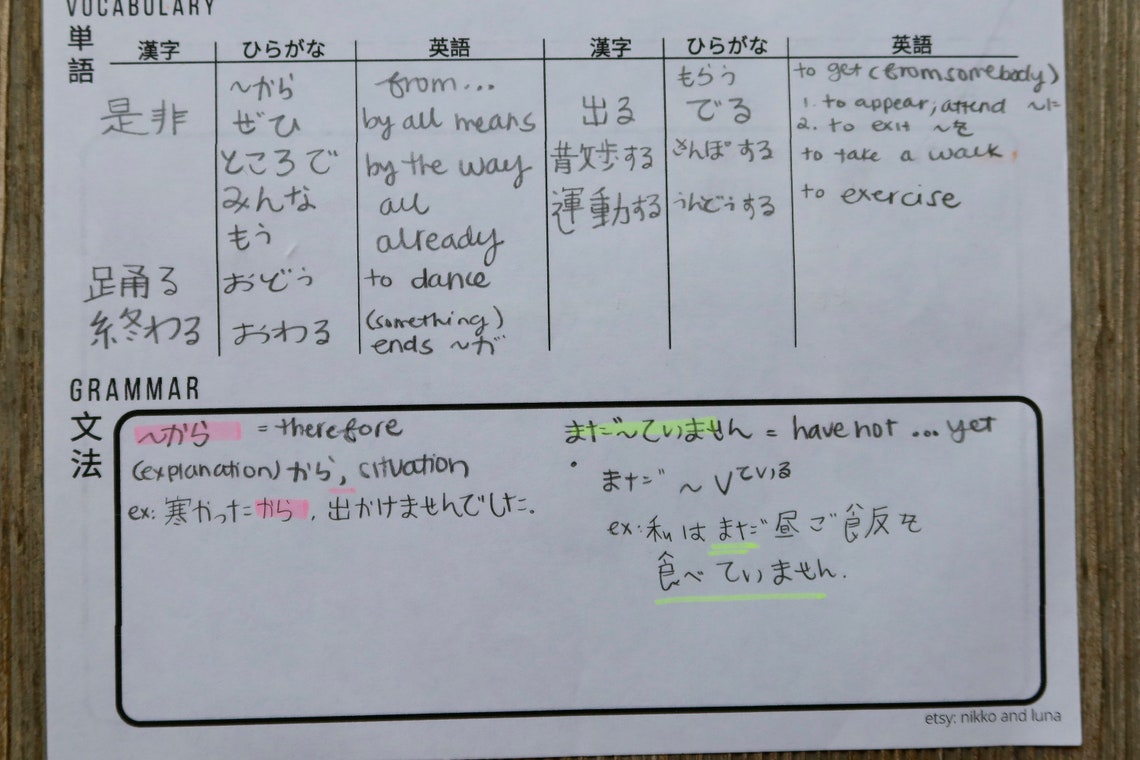 VOCABULARY
単語
漢字 ひらがな 英語 漢字 ひらがな 英語
〜から from... もらう to get (from somebody)
是非 ぜひ by all means 出る でる 1. to appear; attend 〜に
2. to exit 〜を
ところで by the way 散歩する さんぽする to take a walk
みんな all 運動する うんどうする to exercise
もう already
踊る おどう to dance
終わる おわる (something)
ends 〜が
GRAMMAR
文法
〜から = therefore
(explanation) から, situation
ex: 寒かったから, 出かけませんでした.
まだ〜ていません = have not ... yet
・まだ 〜 Vている
ex: 私は まだ 昼ご飯を
食べていません.
etsy: nikko and luna